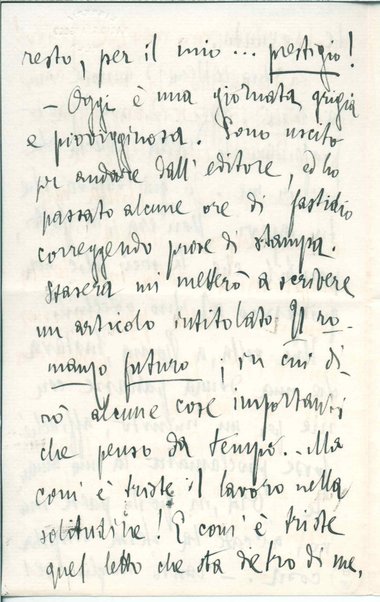 resto, per il mio ... prestigio!
— Oggi è una giornata grigia
e piovigginosa. Sono uscito
per andare dall'editore, ed ho
passato alcune ore di fastidio
correggendo prove di stampa.
Stasera mi metterò a scrivere
un articolo intitolato: Il ro-
manzo futuro; in cui di-
rò alcune cose importanti
che penso da tempo. .. Ma
com'è triste il lavoro nella
solitudine! E com'è triste
quel letto che sta dietro di me,